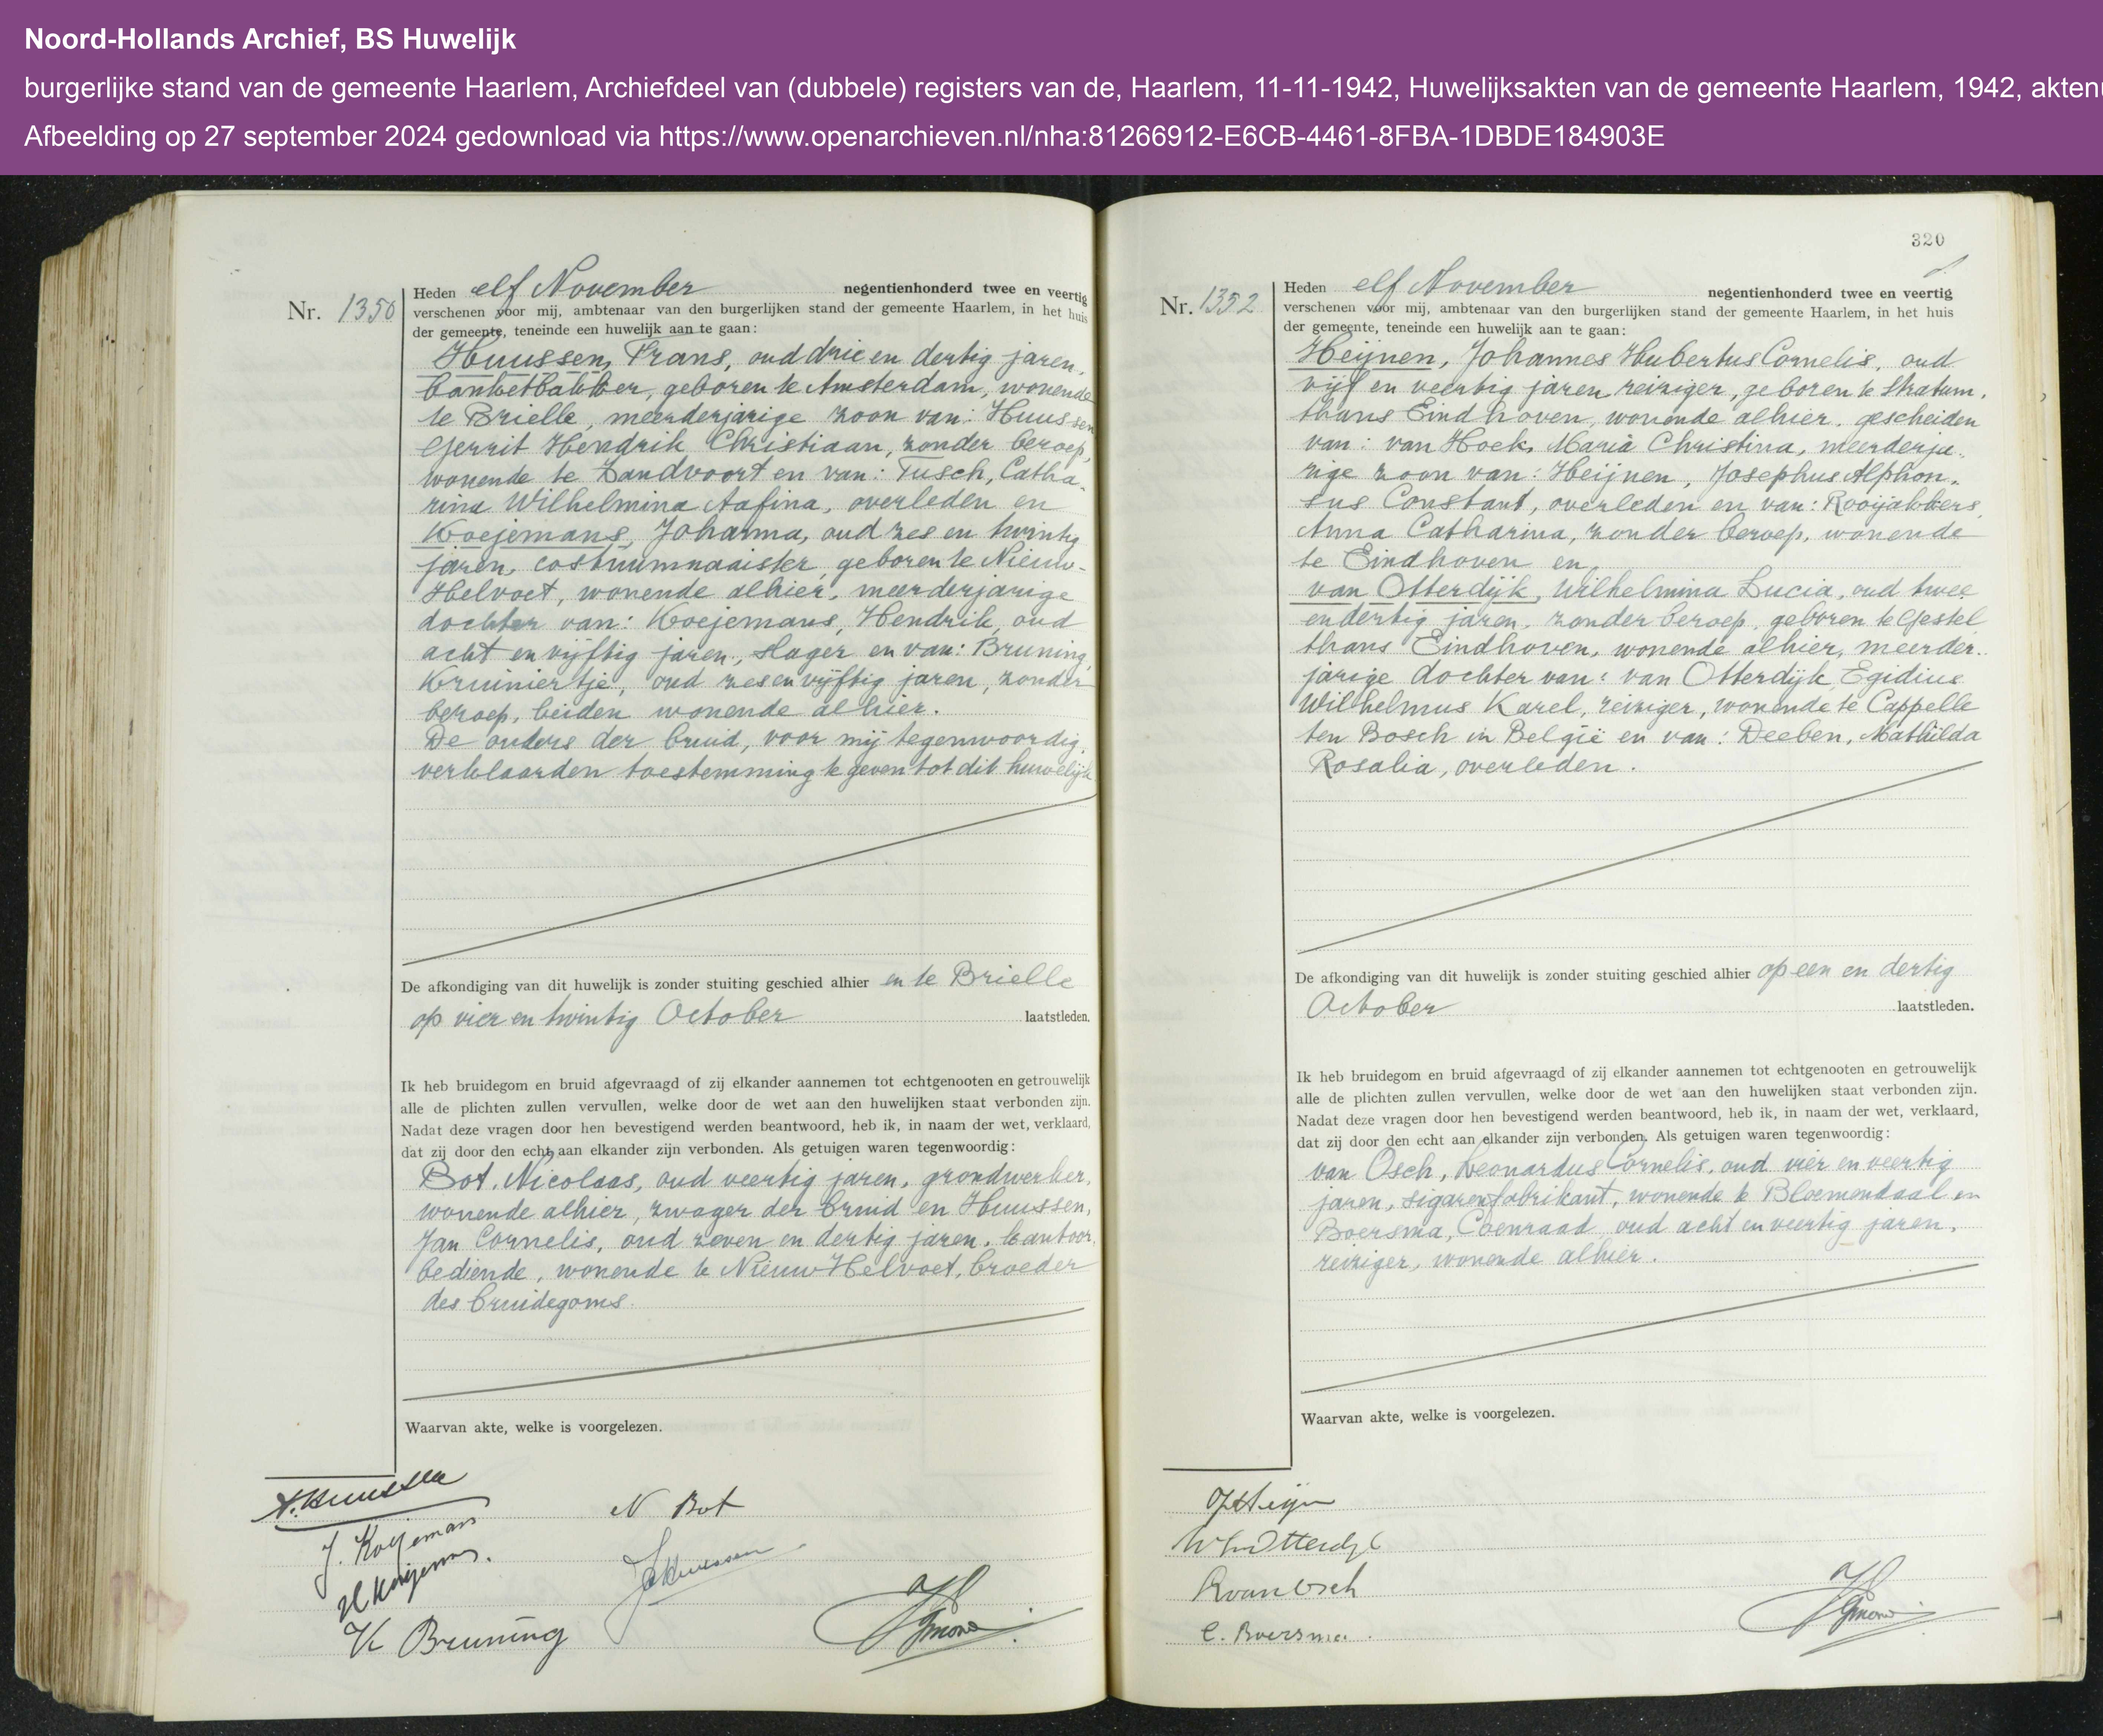 Noord-Hollands Archief, BS Huwelijk
burgerlijke stand van de gemeente Haarlem, Archiefdeel van (dubbele) registers van de, Haarlem, 11-11-1942, Huwelijksakten van de gemeente Haarlem, 1942, akten
Afbeelding op 27 september 2024 gedownload via https://www.openarchieven.nl/nha:81266912-E6CB-4461-8FBA-1DBDE184903E
Nr. 1350
Heden elf November negentienhonderd twee en veertig
verschenen voor mij, ambtenaar van den burgerlijken stand der gemeente Haarlem, in het huis
der gemeente, teneinde een huwelijk aan te gaan:
Huussen, Frans, oud drie en dertig jaren,
banketbakker, geboren te Amsterdam, wonende
te Brielle, meerderjarige zoon van: Huussen
Gerrit Hendrik Christiaan, zonder beroep,
wonende te Zandvoort en van: Tusch, Catha-
rina Wilhelmina Aafina, overleden en
Koejemans, Johanna, oud zes en twintig
jaren, costuumnaaister, geboren te Nieuw-
Helvoet, wonende alhier, meerderjarige
dochter van: Koejemans, Hendrik, oud
acht en vijftig jaren, slager en van: Bruning,
Kruiniertje, oud zes en vijftig jaren, zonder
beroep, beiden wonende alhier.
De ouders der bruid, voor mij tegenwoordig,
verklaarden toestemming te geven tot dit huwelijk
De afkondiging van dit huwelijk is zonder stuiting geschied alhier en te Brielle
op vier en twintig October laatstleden.
Ik heb bruidegom en bruid afgevraagd of zij elkander aannemen tot echtgenooten en getrouwelijk
alle de plichten zullen vervullen, welke door de wet aan den huwelijken staat verbonden zijn.
Nadat deze vragen door hen bevestigend werden beantwoord, heb ik, in naam der wet, verklaard,
dat zij door den echt aan elkander zijn verbonden. Als getuigen waren tegenwoordig:
Bot, Nicolaas, oud veertig jaren, grondwerker,
wonende alhier, zwager der bruid en Huussen,
Jan Cornelis, oud zeven en dertig jaren, kantoor
bediende, wonende te Nieuw-Helvoet, broeder
des bruidegoms.
Waarvan akte, welke is voorgelezen.
F. Huussen
J. Koejemans
H Koejemans.
K Bruning
N Bot
320
Nr. 1352
Heden elf November negentienhonderd twee en veertig
verschenen voor mij, ambtenaar van den burgerlijken stand der gemeente Haarlem, in het huis
der gemeente, teneinde een huwelijk aan te gaan:
Heijnen, Johannes Hubertus Cornelis, oud
vijf en veertig jaren, reiziger, geboren te Stratum,
thans Eindhoven, wonende alhier, gescheiden
van: van Hoek, Maria Christina, meerderja-
rige zoon van: Heijnen, Josephus Alphon-
sus Constant, overleden en van: Rooijakkers,
Anna Catharina, zonder beroep, wonende
te Eindhoven en
van Otterdijk, Wilhelmina Lucia, oud twee
en dertig jaren, zonder beroep, geboren te Gestel
thans Eindhoven, wonende alhier, meerder-
jarige dochter van: van Otterdijk, Egidius
Wilhelmus Karel, reiziger, wonende te Cappelle
ten Bosch in België en van: Deeben, Mathilda
Rosalia, overleden.
De afkondiging van dit huwelijk is zonder stuiting geschied alhier op een en dertig
October laatstleden.
Ik heb bruidegom en bruid afgevraagd of zij elkander aannemen tot echtgenooten en getrouwelijk
alle de plichten zullen vervullen, welke door de wet aan den huwelijken staat verbonden zijn.
Nadat deze vragen door hen bevestigend werden beantwoord, heb ik, in naam der wet, verklaard,
dat zij door den echt aan elkander zijn verbonden. Als getuigen waren tegenwoordig:
van Osch, Leonardus Cornelis, oud vier en veertig
jaren, sigarenfabrikant, wonende te Bloemendaal en
Boersma, Coenraad, oud acht en veertig jaren,
reiziger, wonende alhier.
Waarvan akte, welke is voorgelezen.
van Osch
C. Boersma.